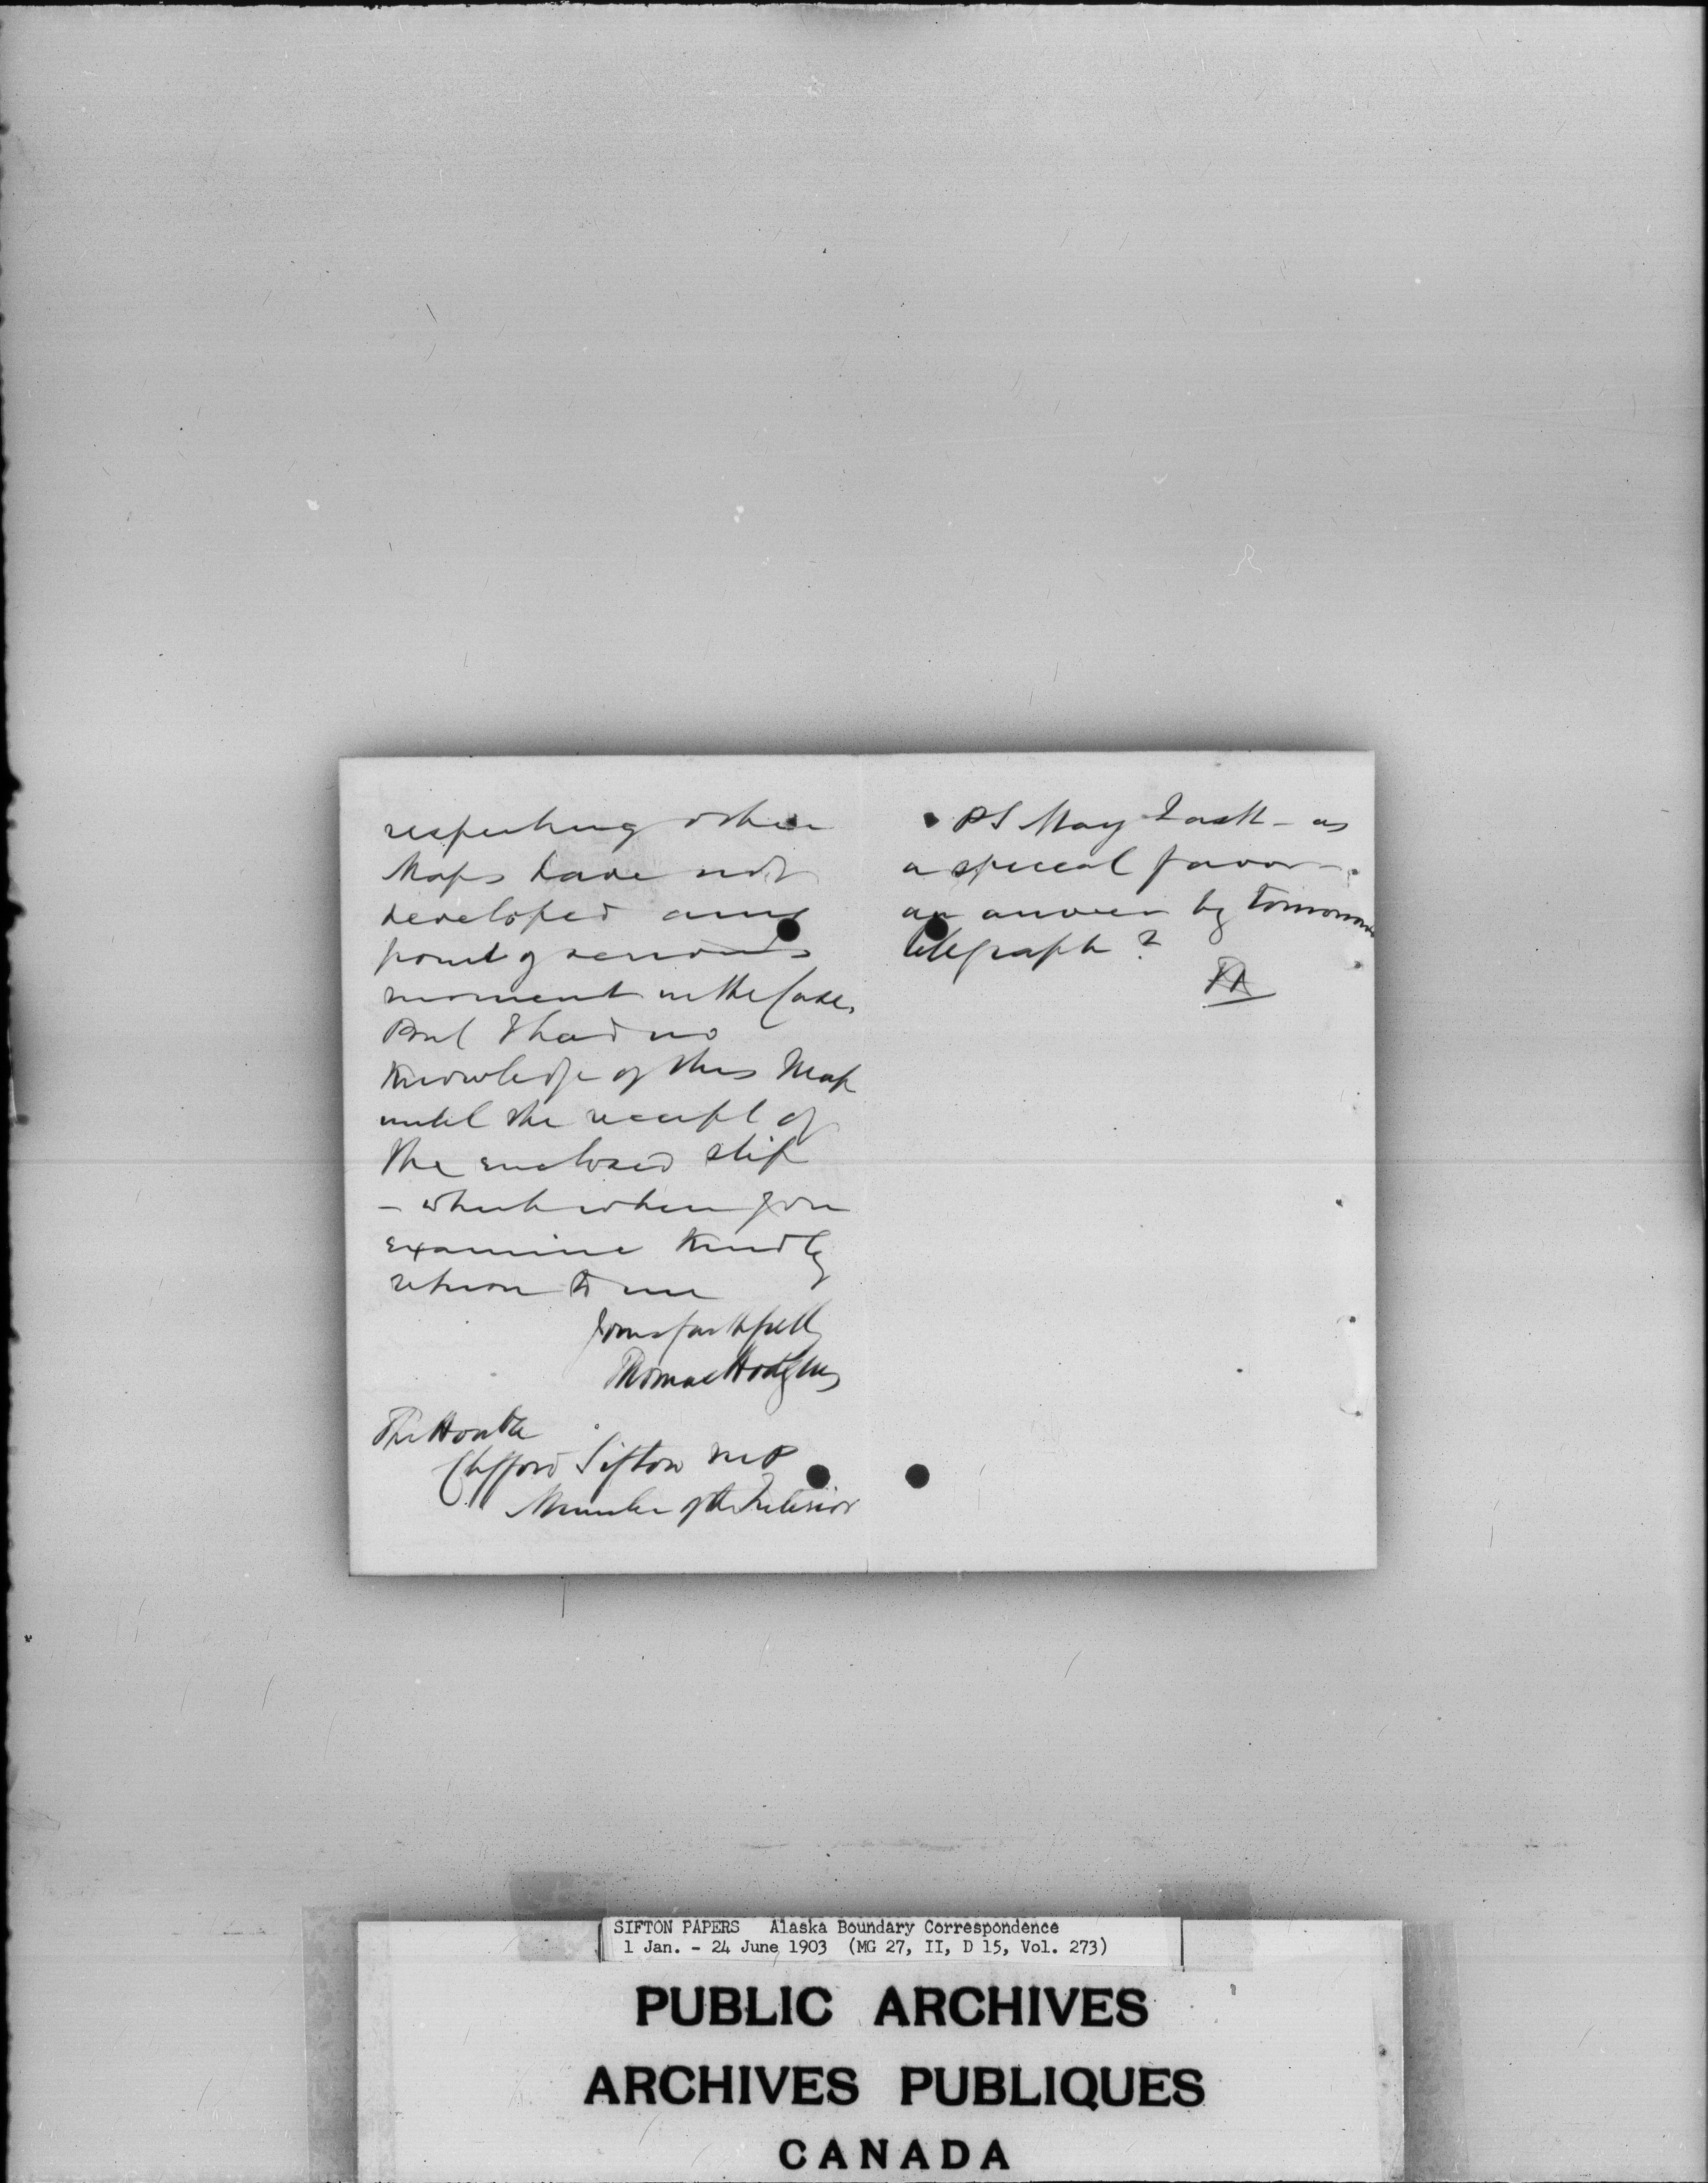 respecting other
Maps have not
developed any
point of serious
moment in the Case,
But I had no
knowledge of this Map
until the receipt of
the enclosed slip
– which when you
examine kindly
return to me
Yours faithfully
Thomas Hodgins
The Honble
Clifford Sifton MP
Minister of the Interior
PS May I ask – as
a special favor –
an answer by tomorrow
telegraph?
TH
SIFTON PAPERS Alaska Boundary Correspondence
1 Jan. - 24 June 1903 (MG 27, II, D 15, Vol. 273)
PUBLIC ARCHIVES
ARCHIVES PUBLIQUES
CANADA